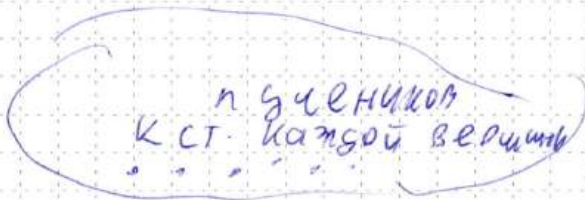 n учеников
K ст. каждой вершины